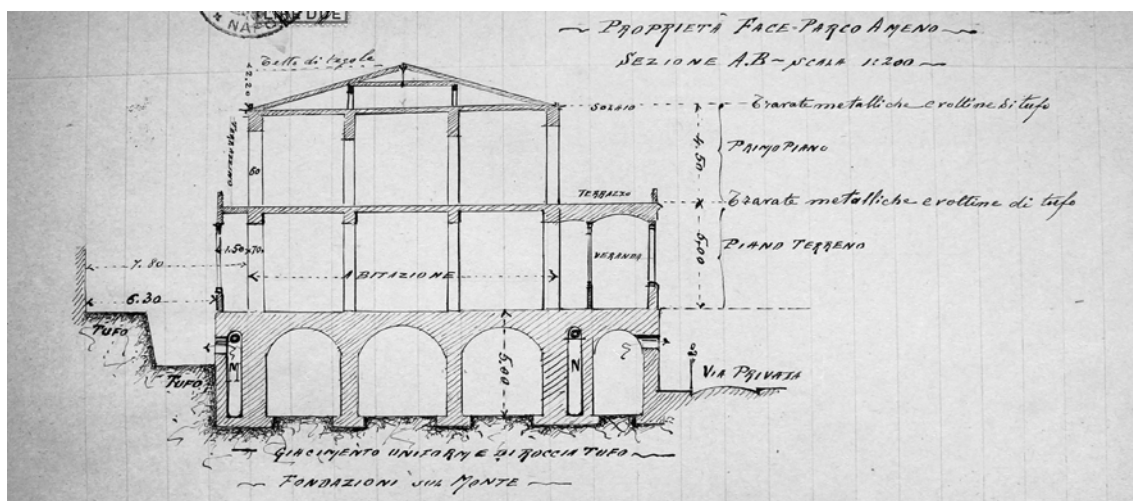 NAPO
LIRE DUE
~ PROPRIETÀ FACE-PARCO AMENO ~
SEZIONE A.B ~ SCALA 1:200 ~
Tetto di tegole
2.20
SOLAIO
Travate metalliche e voltine di tufo
TERRAZZINO
4.50
PRIMO PIANO
60
TERRAZZO
Travate metalliche e voltine di tufo
5,00
PIANO TERRENO
1.50
70
VERANDA
7.80
ABITAZIONE
6.30
TUFO
TUFO
N
5.00
N
VIA PRIVATA
GIACIMENTO UNIFORME DI ROCCIA TUFO
~ FONDAZIONI SUL MONTE ~